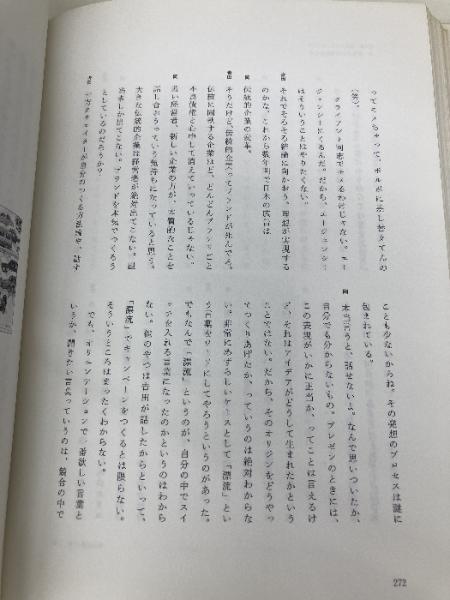 ってモメちゃって、ボルボに差し替えてんの
（笑）。
クライアント同志でモメるわけじゃない。エー
ジェンシーにくるんだ。だから、エージェンシー
はそういうことはやりたくない。
それでそろそろ結論に向かおう。理想が実現する
のかな。これから数年間で日本の広告は
伝統的企業の改革。
そうだけど、伝統的企業ってブランドが死んでる。
伝統に固執する企業ほど、どんどんブランドごと
不良債権と心中して消えていっているじゃない。
若い経営者、新しい企業の方が、本質的なことを
話し合おうっていう気持ちになっていると思う。
大きな伝統的企業は経営者が絶対出てこない。
出てこない。ブランドを本気でつくろう
としているのだろうか？
一方クリエイターが自分のつくる方法論や、話す
ことも少ないからね。その発想のプロセスは謎に
包まれている。
岡
本当にいうと、話せないよ。なんで思いついたか、
自分でも分からないもの。プレゼンのときには、
この表現がいかに正当か、ってことは言えるけ
ど、それはアイデアがどうして生まれたかという
ことではない。だから、そのオリジンをどうやっ
てつくりあげたか、っていうのは絶対わからな
い。非常にめずらしいケースとして「漂流」とい
う言葉をテーマにしてやろうというのがあった。
でもなんで「漂流」というのが、自分の中でスイ
ッチを入れる言葉になったのかというのはわから
ない。彼のやつは吉田が話したからといって、
「漂流」でキャンペーンをつくるとは限らない。
そういうところはまったくわからない。
でも、オリエンテーションで一番欲しい言葉と
いうか、聞きたい言葉っていうのは、競合の中で
272